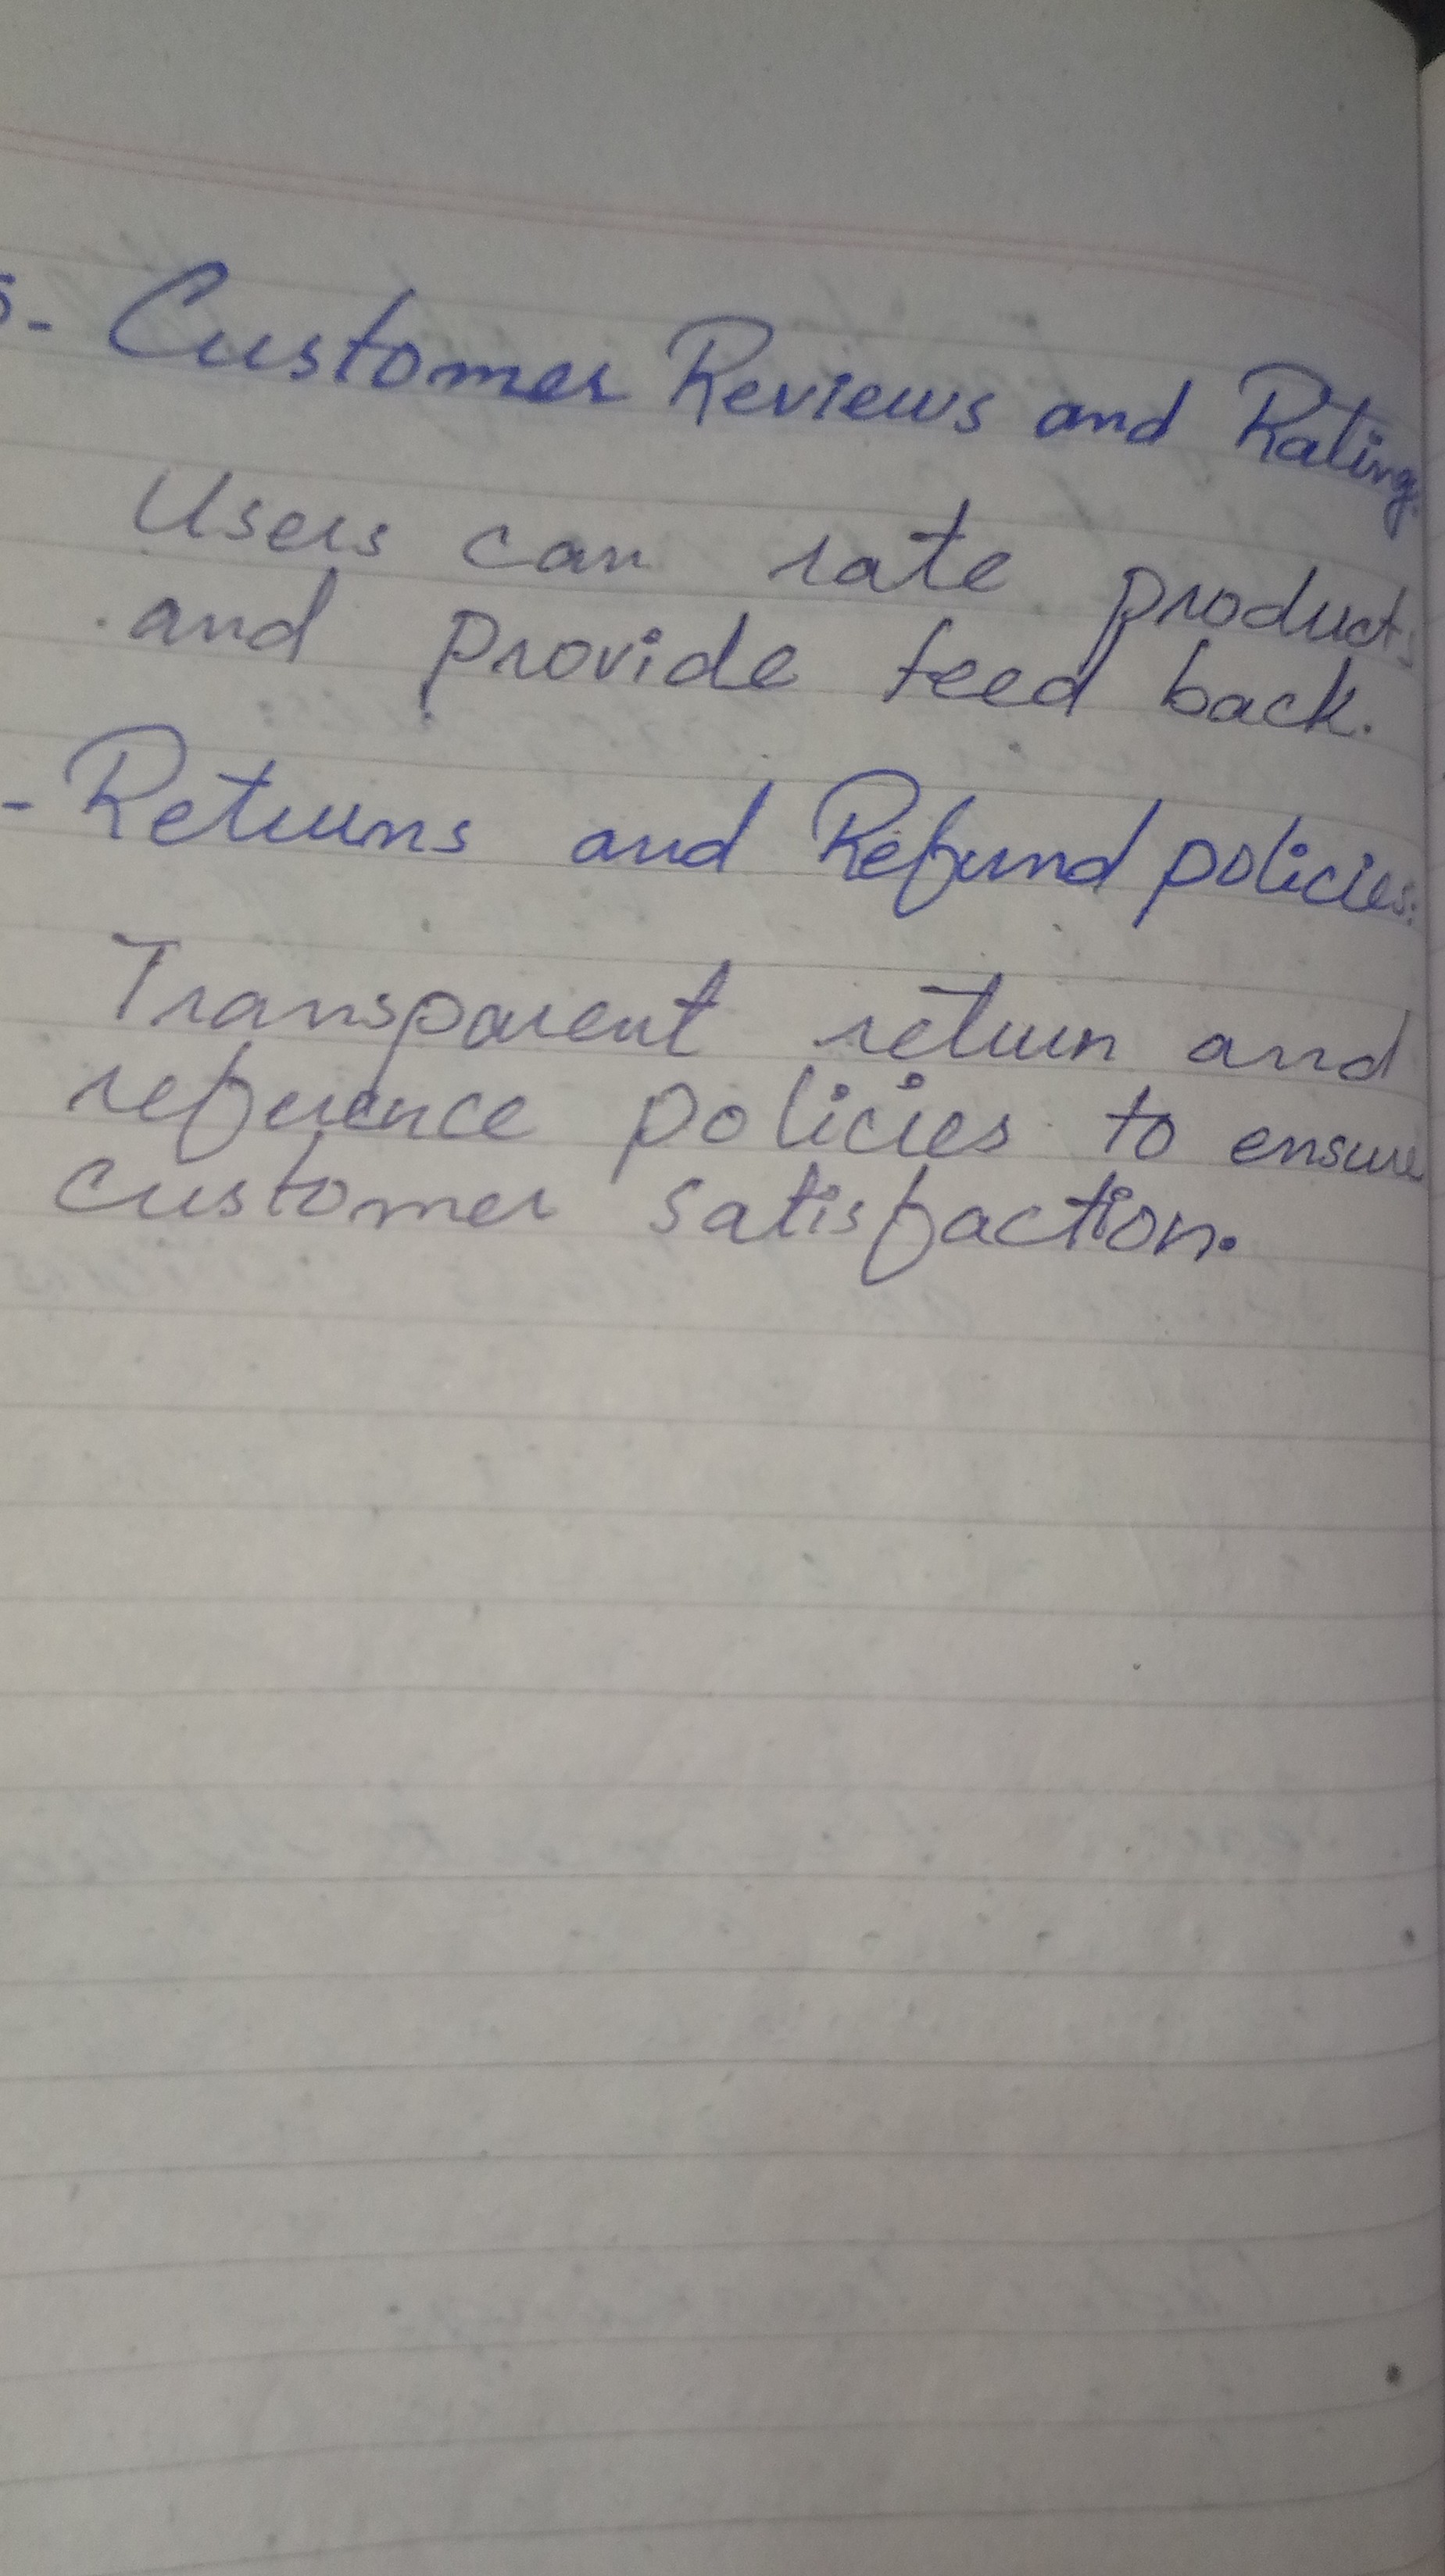 5- Customer Reviews and Rating.
Users can rate products
and provide feed back.
- Returns and Refund policies:
Transparent return and
reference policies to ensure
customer satisfaction.